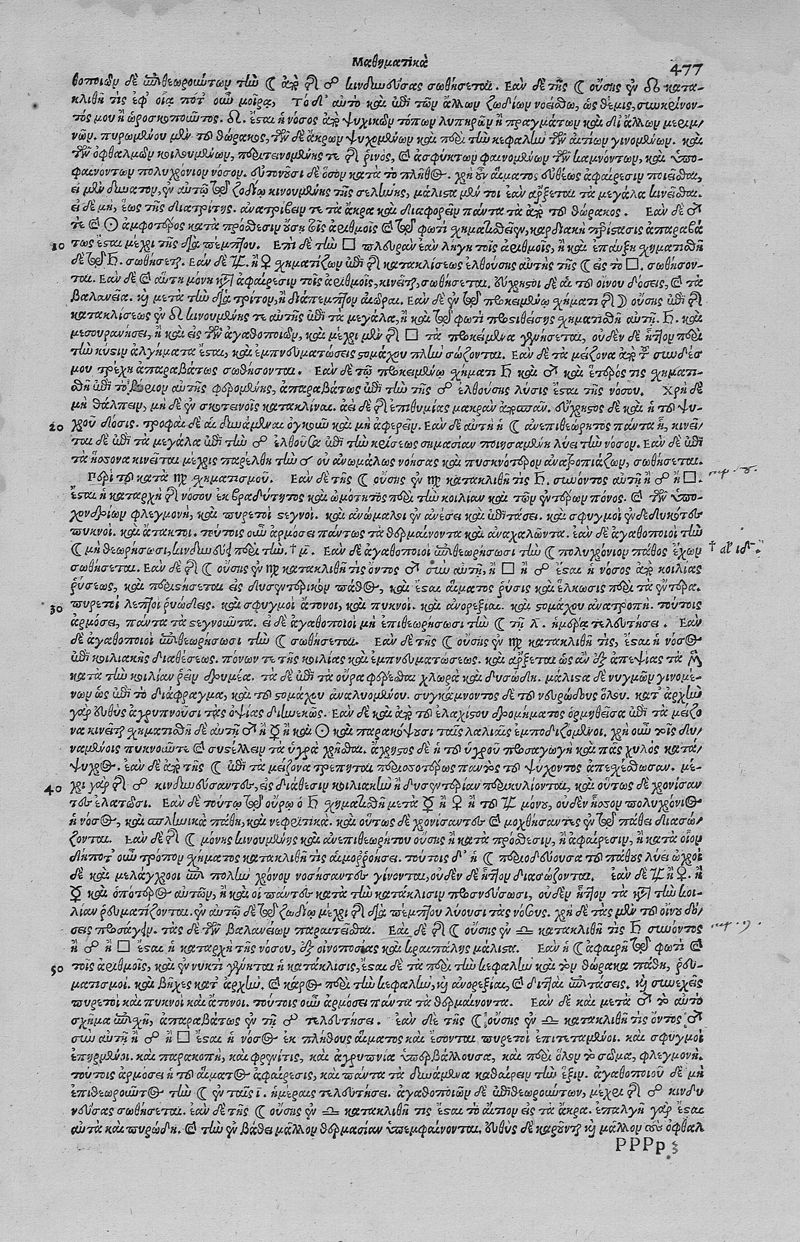 Μαθηματικὰ 477
θοποιῶν δὲ ἐπιθεωρούντων τὴν ☾ ἀπὸ τῆς ☍ κινδυνεύσας σωθήσεται. Ἐὰν δὲ τῆς ☾ οὔσης ἐν ♌ κατα-
κλιθῆ τις ἐφ᾽ οἵα ποτ᾽ οὖν μοίρα, Τὸ δ᾽ αὐτὸ καὶ ἐπὶ τῶν ἄλλων ζωδίων νοείσθω, ὡς θέμις, συνκρίνον-
τός μου ἢ ὡροσκοποῦντος. ♌. ἔσται ἡ νόσος ἀπὸ ψυχικῶν τόπων λυπηρῶν ἢ πραγμάτων καὶ δι᾽ ἄλλων μεριμ-
νῶν. πυρωμένου μὲν τοῦ θώρακος, τῶν δὲ ἄκρων ψυχομένων καὶ περὶ τὴν κεφαλὴν τῶν αἰτίων γινομένων. καὶ
τῶν ὀφθαλμῶν κοιλουμένων, περιτεινομένης τε τῆς ῥινός, καὶ ἀσφύκτων φαινομένων τῶν καμνόντων, καὶ ὑπο-
φαινόντων πολυχρόνιον νόσον. εὐτονοῦσι δὲ ὅσον κατὰ τὸ πλῆθος. χρὴ οὖν αἵματος, εὐθέως ἀφαίρεσιν ποιεῖσθαι,
εἰ μὲν δυνατὸν, ἐν αὐτῷ τῷ ζωδίῳ κινουμένης τῆς σελήνης, μάλιστα μέν τοι ἐὰν ἄρξεται τὰ μεγάλα κινεῖσθαι.
εἰ δὲ μὴ, ἕως τῆς διατρίτης. ἀνατρίβειν τε τὰ ἄκρα καὶ διαφορεῖν πάντα τὰ ἀπὸ τοῦ θώρακος. Ἐὰν δὲ ♂
τε καὶ ☉ ἀμφοτέρος κατὰ πρόσθεσιν οὔσῃ τοῖς ἀριθμοῖς καὶ τῷ φωτὶ σχηματισθῶσιν, καρδιακὴ περίστασις ἀπαραβά
10 τως ἔσται μέχρι τῆς διὰ πέμπτου. Ἐπὶ δὲ τὴν □ πλευρὰν ἐὰν λήγῃ τοῖς ἀριθμοῖς, ἢ καὶ ἐπαύξῃ σχηματισθῆ
δὲ τῷ ♄. σωθήσεται. Ἐὰν δὲ ♃. ἢ ♀ σχηματίζων ἐπὶ τῆς κατακλίσεως ἐλθούσης αὐτῆς τῆς ☾ εἰς τὸ □. σωθήσον-
ται. Ἐὰν δὲ καὶ αὕτη μόνη κατὰ ἀφαίρεσιν τοῖς ἀριθμοῖς, κινεῖται, σωθήσεται. εὔχρηστοι δὲ αἱ τοῦ οἴνου δόσεις, καὶ τὰ
βαλανεῖα. καὶ μετὰ τὴν διὰ τρίτου, ἢ διάπεμπτον αἰώραι. Ἐὰν δὲ ἐν τῷ προκειμένῳ σχήματι τῆς ☽ οὔσης ἐπὶ τῆς
κατακλίσεως ἐν ♌ κινουμένης τε αὐτῆς ἐπὶ τὰ μεγάλα, ἢ καὶ τῷ φωτὶ προστιθείσης σχηματισθῆ αὐτῇ. ♄. καὶ
μεσουρανήσει, ἢ καὶ εἰς τῶν ἀγαθοποιῶν, καὶ μέχρι μὲν τῆς □ τὰ προκείμενα γενήσεται, οὐδὲν δὲ ἧττον περὶ
τὴν κύστιν ἀλγήματα ἔσται, καὶ ἐμπνευματώσεις στομάχου πλὴν σώζονται. Ἐὰν δὲ τὰ μείζονα ἀπὸ τοῦ συνδέσ
μου τρέχῃ ἀπαραβάτως σωθήσονται. Ἐὰν δὲ τῷ προκειμένῳ σχήματι ♄ καὶ ♂ καὶ ἕτερός τις σχηματι-
σθῆ ἐπὶ τὸ βόρειον αὐτῆς φερομένης, ἀπαραβάτως ἐπὶ τὴν τῆς ☍ ἐλθούσης λύσις ἔσται τῆς νόσου. Χρὴ δὲ
μὴ θάλπειν, μὴ δὲ ἐν σκοτεινοῖς κατακλῖναι. ἀεὶ δὲ τῆς ἐπιθυμίας μακρὰν ἀποσπᾶν. εὔχρηστος δὲ καὶ ἡ τοῦ ψυ-
20 χροῦ δόσις. τροφαὶ δὲ αἱ δυνάμεναι ὀγκοῦν καὶ μὴ διαφέρειν. Ἐὰν δὲ αὐτὴ ἡ ☾ ἀνεπιθεώρητος πάντα ᾖ, κινεῖ-
ται δὲ ἐπὶ τὰ μεγάλα ἐπὶ τὴν ☍ ἐλθοῦσα ἐπὶ τὴν κρίσεως σημασίαν ποιησαμένη λύει τὴν νόσον. Ἐὰν δὲ ἐπὶ
τὰ ἥσσονα κινεῖται μέχρις παρέλθῃ τὴν ☌ οὐ ἀνωμάλως νοήσας καὶ πυκνότερον ἀναξοπιάζων, σωθήσεται.
Περὶ τοῦ κατὰ ♍ σχηματισμοῦ. Ἐὰν δὲ τῆς ☾ οὔσης ἐν ♍ κατακλιθῆ τις ♄. συνόντος αὐτῇ ἢ ☍ ἢ □.
ἔσται ἡ καταρχὴ τῆς νόσου ἐκ βραδύτητος καὶ ὠμότητος περὶ τὴν κοιλίαν καὶ τῶν ἐντέρων πόνος. καὶ τῶν ὑπο-
χονδρίων φλεγμονὴ, καὶ πυρετοὶ στεγνοί. καὶ ἀνώμαλοι ἐν ἀνέσει καὶ ἐπιτάσει. καὶ σφυγμοὶ ἐνδεδυκότες
πυκνοί. καὶ ἄτακτοι. τούτοις οὖν ἁρμόσει πάντως τὰ θερμαίνοντα καὶ ἀναχαλῶντα. ἐὰν δὲ ἀγαθοποιοὶ τὴν
☾ μὴ θεωρήσωσι, κινδυνεύσει περὶ τὴν. † μ̄. Ἐὰν δὲ ἀγαθοποιοὶ ἐπιθεωρήσωσι τὴν ☾ πολυχρόνιον πάθος ἔχων
σωθήσεται. Ἐὰν δὲ τῆς ☾ οὔσης ἐν ♍ κατακλιθῆ τις ὄντος ♂ σὺν αὐτῇ, ἢ □ ἢ ☍ ἔσται ἡ νόσος ἀπὸ κοιλίας
ῥύσεως, καὶ περιστήσεται εἰς δυσεντερικὸν πάθος, καὶ ἔσται αἵματος ῥύσις καὶ ἕλκωσις περὶ τὰ ἔντερα.
30 πυρετοὶ λεπτοὶ ῥυώδεις. καὶ σφυγμοὶ ἄτονοι, καὶ πυκνοί. καὶ ἀνορεξίαι. καὶ στομάχου ἀνατροπή. τούτοις
ἁρμόσει, πάντα τὰ στεγνοῦντα. εἰ δὲ ἀγαθοποιοὶ μὴ ἐπιθεωρήσωσι τὴν ☾ τῇ λ. ἡμέρᾳ τελευτήσει. Ἐὰν
δὲ ἀγαθοποιοὶ ἐπιθεωρήσωσι τὴν ☾ σωθήσεται. Ἐὰν δὲ τῆς ☾ οὔσης ἐν ♍ κατακλιθῆ τις, ἔσται ἡ νόσος
ἐπὶ κοιλιακῆς διαθέσεως. πόνων τε τῆς κοιλίας καὶ ἐμπνευματώσεως. καὶ ἄρξεται ὡς ἂν ἐξ ἀπεψίας τὰ
κατὰ τὴν κοιλίαν ῥεῖν δριμέα. τὰ δὲ ἐπὶ τὰ οὖρα φέρεσθαι χλωρὰ καὶ δυσώδη. μάλιστα δὲ νυγμῶν γινομέ-
νων ὡς ἐπὶ τὸ διάφραγμα, καὶ τοῦ στομάχου ἀναλυομένου. συγκάμνοντος δὲ τοῦ νευρώδους ὅλου. κατ᾽ ἀρχὴν
γὰρ εὐθὺς ἀγρυπνοῦσι τὰς ὀψίας διηνεκῶς. Ἐὰν δὲ καὶ ἀπὸ τοῦ ἐλαχίστου δρομήματος ὁρμηθεῖσα ἐπὶ τὰ μείζο
να κινεῖται σχηματισθῆ δὲ αὐτῇ ♂ ἢ ☿ ἢ καὶ ☉ καὶ παρακόψουσι ταῖς λαλιαῖς ἐμποδιζόμενοι. χρὴ οὖν τοῖς δυ-
ναμένοις πυκνοῦν τε καὶ συστέλλειν τὰ ὑγρὰ χρῆσθαι. ἄχρηστος δὲ ἡ τοῦ ὑγροῦ προσαγωγὴ καὶ πᾶς χυλὸς κατά-
ψυχρος. ἐὰν δὲ ἀπὸ τῆς ☾ ἐπὶ τὰ μείζονα τρέπηται περισσοτέρως παντὸς τοῦ ψύχοντος ἀπεχέσθωσαν. μέ-
40 χρι γὰρ τῆς ☍ κινδυνεύσαντες, εἰς διάθεσιν κοιλιακὴν ἢ δυσεντερίαν περικυλίονται, καὶ οὕτως δὲ χρονίσαν
τες ἐλατοῦσι. Ἐὰν δὲ τούτῳ τῷ ὅρῳ ὁ ♄ σχηματισθῆ μετὰ ☿ ἢ ♀ ἢ τοῦ ♃ μόνου, οὐδὲν ἧσσον πολυχρόνιος
ἡ νόσος, καὶ σπληνικὰ πάθη, καὶ νεφριτικά. καὶ οὕτως δὲ χρονίσαντες καὶ μοχθήσαντες ἐν τῷ πάθει διασώ-
ζονται. Ἐὰν δὲ τῆς ☾ μόνης κινουμένης καὶ ἀνεπιθεωρήτου οὔσης ἢ κατὰ πρόσθεσιν, ἢ ἀφαίρεσιν, ἢ κατὰ οἷον
δήποτ᾽ οὖν τρόπον σχήματος κατακλιθῆ τις αἱμορροήσει. τούτοις δ᾽ ἡ ☾ περιοδεύουσα τὸ πάθος λύει ὠχροὶ
δὲ καὶ μελάγχροοι ἐπὶ πολὺν χρόνον νοσήσαντες γίνονται, οὐδὲν δὲ ἧττον διασώζονται. ἐὰν δὲ ♃ ἢ ♀. ἢ
☿ καὶ ὁπότερος αὐτῶν, ἢ καὶ οἱ πάντες κατὰ τὴν κατάκλισιν προσνεύσωσι, οὐδὲν ἧττον τὰ κατὰ τὴν κοι-
λίαν ῥευματίζονται. ἐν αὐτῷ δὲ τῷ ζωδίῳ μέχρι τῆς διὰ πέμπτου λύουσι τὰς νόσους. χρὴ δὲ τὰς μὲν τοῦ οἴνου δό-
σεις προσάγειν. τὰς δὲ τῶν βαλανείων παραιτεῖσθαι. Ἐὰν δὲ τῆς ☾ οὔσης ἐν ♎ κατακλιθῆ τις ♄ συνόντος
ἢ ☍ ἢ □ ἔσται ἡ καταρχὴ τῆς νόσου, ἐξ οἰνοποσίας καὶ κραιπάλης μάλιστα. Ἐὰν ἡ ☾ ἀφαιρῇ τῷ φωτὶ καὶ
50 τοῖς ἀριθμοῖς, καὶ ἐν νυκτὶ γένηται ἡ κατάκλισις, ἔσται δὲ τὰ περὶ τὴν κεφαλὴν καὶ τὸν θώρακα πάθη, ῥευ-
ματισμοί. καὶ βῆχες κατ᾽ ἀρχὴν. καὶ κάρος περὶ τὴν κεφαλὴν, καὶ ἀνορεξία, καὶ διτταὶ ἐπιτάσεις. καὶ συνεχεῖς
πυρετοὶ καὶ πυκνοὶ καὶ ἄτονοι. τούτοις οὖν ἁρμόσει πάντα τὰ θερμαίνοντα. Ἐὰν δὲ καὶ μετὰ ♂ τὸ αὐτὸ
σχῆμα ἐπέχῃ, ἀπαραβάτως ἐν τῇ ☍ τελευτήσει. ἐὰν δὲ τῆς ☾ οὔσης ἐν ♎ κατακλιθῆ τις ὄντος ♂
σὺν αὐτῇ ἢ ☍ ἢ □ ἔσται ἡ νόσος ἐκ πλήθους αἵματος καὶ ἔσονται πυρετοὶ ἐπιτεταμένοι. καὶ σφυγμοὶ
ἐπηρμένοι. καὶ παρακοπὴ, καὶ φρενίτις, καὶ ἀγρυπνία ὑπερβάλλουσα, καὶ περὶ ὅλον τὸ σῶμα, φλεγμονή.
τούτοις ἁρμόσει ἡ τοῦ αἵματος ἀφαίρεσις, καὶ πάντα τὰ δυνάμενα καθαίρειν τὴν ἕξιν. ἀγαθοποιοῦ δὲ μὴ
ἐπιθεωροῦντος τὴν ☾ ἐν ταῖς ι. ἡμέραις τελευτήσει. ἀγαθοποιῶν δὲ ἐπιθεωρούντων, μέχρι τῆς ☍ κινδυ
νεύσας σωθήσεται. ἐὰν δὲ τῆς ☾ οὔσης ἐν ♎ κατακλιθῆ τις ἔσται τὸ αἴτιον εἰς τὰ ἄκρα. ἐπαλγῆ γὰρ ἔσται
αὐτὰ καὶ πυρώδη. καὶ τὴν ἐν βάθει μᾶλλον θερμασίαν ὑπεμφαίνονται. εὐθὺς δὲ καροῦνται καὶ μᾶλλον τοὺς ὀφθαλ
PPPp 3